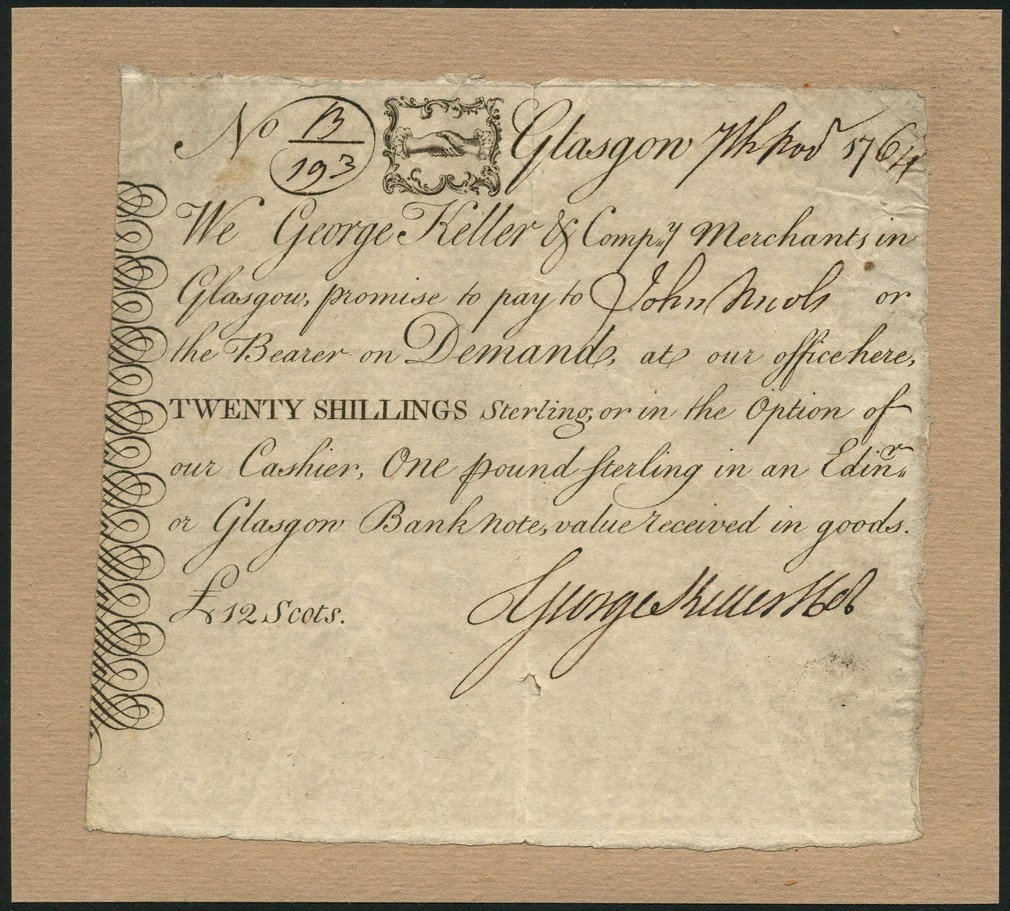 No B/193 Glasgow 7th Nov 1764
We George Keller & Comp.y Merchants in
Glasgow, promise to pay to John or
the Bearer on Demand, at our office here,
TWENTY SHILLINGS Sterling, or in the Option of
our Cashier, One pound sterling in an Edinr.
or Glasgow Bank note, value received in goods.
£12 Scots. George Keller & Co